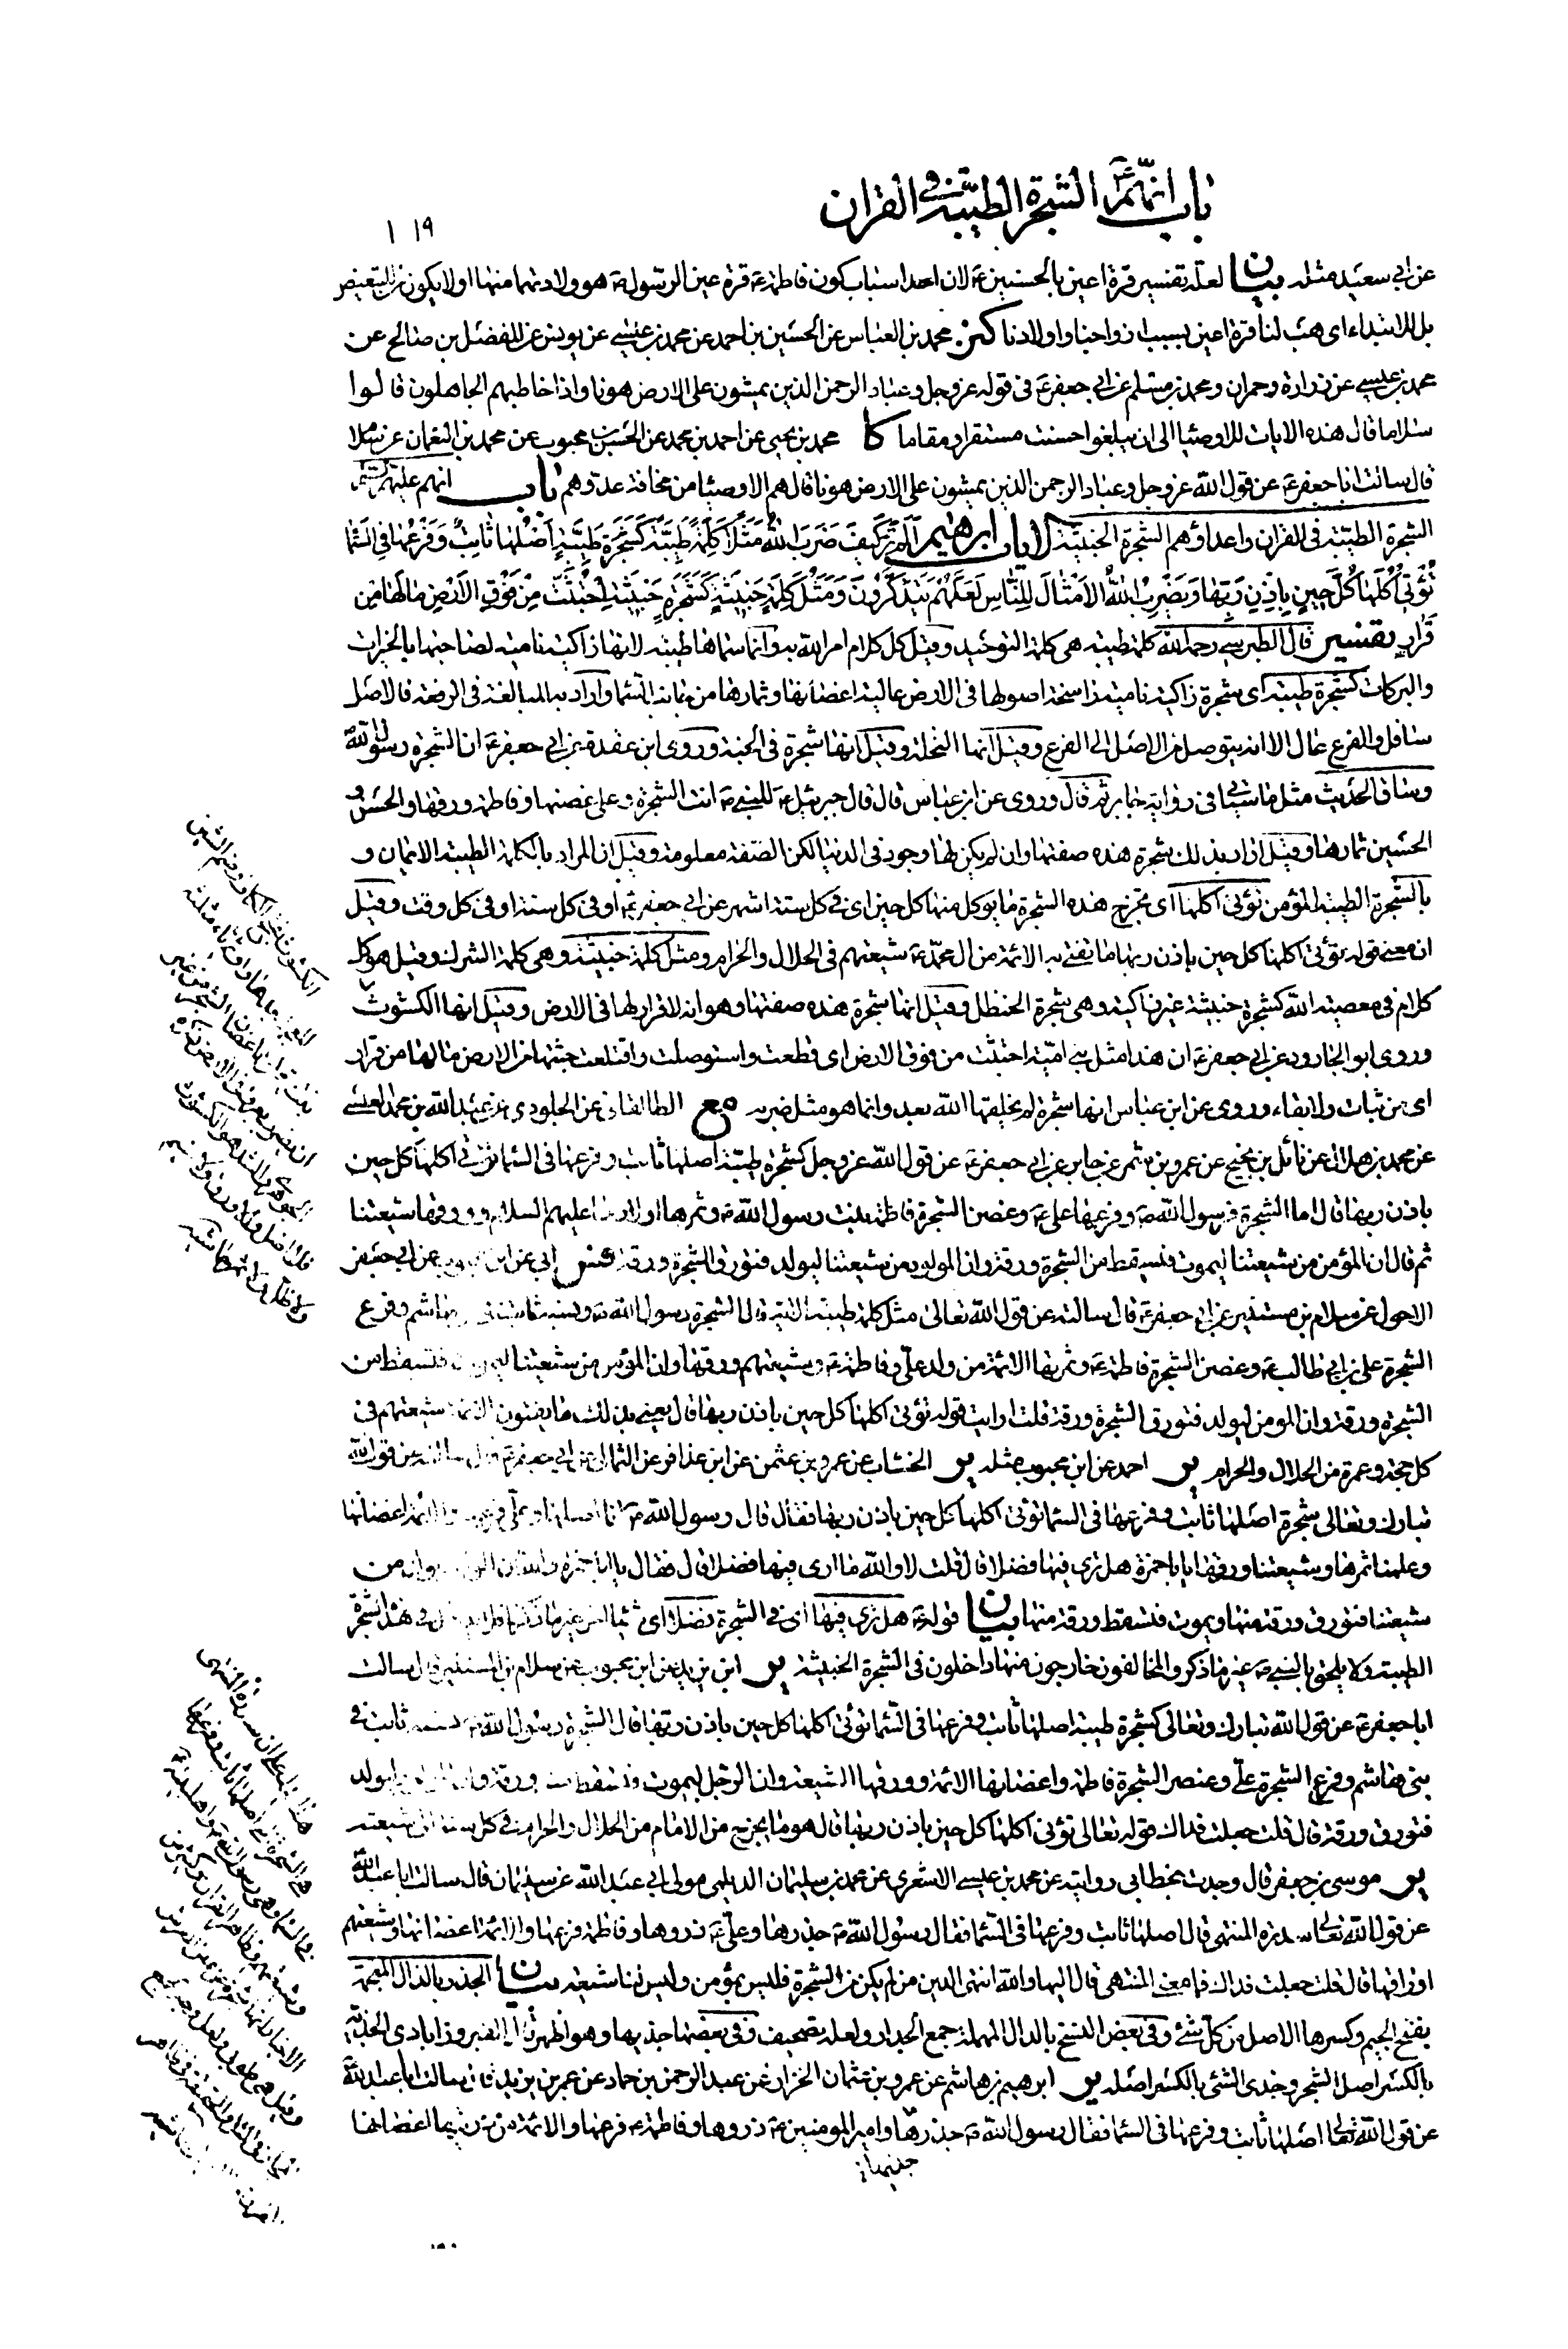 باب انهم الشجرة الطيبة في القران
١١٩
عن ابي سعيد مثله بيان لعله تفسير قرة اعين بالحسنين ع لان احد اسباب كون فاطمة ع قرة عين الرسول ص هو ولادتهما منها اولا يكون من للتبعيض
بل للابتداء اي هب لنا قرة اعين بسبب ازواجنا واولادنا كنز محمد بن العباس عن الحسين بن احمد عن محمد بن عيسى عن يونس عن المفضل بن صالح عن
محمد بن عيسى عن زرارة وحمران ومحمد بن مسلم عن ابي جعفر ع في قوله عز وجل وعباد الرحمن الذين يمشون على الارض هونا واذا خاطبهم الجاهلون قالوا
سلاما قال هذه الايات للاوصيا الى ان يبلغوا حسنت مستقرا ومقاما كا محمد بن يحيى عن احمد بن محمد عن الحسن بن محبوب عن محمد بن النعمان عن سلام
قال سالت ابا جعفر ع عن قول الله عز وجل وعباد الرحمن الذين يمشون على الارض هونا قال هم الاوصيا من مخافة عدوهم باب انهم عليهم السلم
الشجرة الطيبة في القران واعداؤهم الشجرة الخبيثة الايات ابرهيم أَلَمْ تَرَ كَيْفَ ضَرَبَ اللهُ مَثَلًا كَلِمَةً طَيِّبَةً كَشَجَرَةٍ طَيِّبَةٍ أَصْلُهَا ثَابِتٌ وَفَرْعُهَا فِي السَّمَا
تُؤْتِي أُكُلَهَا كُلَّ حِينٍ بِإِذْنِ رَبِّهَا وَيَضْرِبُ اللهُ الْأَمْثَالَ لِلنَّاسِ لَعَلَّهُمْ يَتَذَكَّرُونَ وَمَثَلُ كَلِمَةٍ خَبِيثَةٍ كَشَجَرَةٍ خَبِيثَةٍ اجْتُثَّتْ مِنْ فَوْقِ الْأَرْضِ مَا لَهَا مِنْ
قَرَارٍ تفسير قال الطبرسي رحمه الله كلمة طيبة هي كلمة التوحيد وقيل كل كلام امر الله به وانما سماها طيبة لانها زاكية نامية لصاحبها بالخيرات
والبركات كشجرة طيبة اي شجرة زاكية نامية راسخة اصولها في الارض عالية اغصانها وثمارها من جانب السما واراد به المبالغة في الرفعة فالاصل
سافل والفرع عال الا انه يتوصل من الاصل الى الفرع وقيل انها النخلة وقيل انها شجرة في الجنة وروى ابن عقدة عن ابي جعفر ع ان الشجرة رسول الله
وساق الحديث مثل ما سياتي في رواية جابر ثم قال وروى عن ابن عباس قال قال جبرئيل ع للنبي ص انت الشجرة وعلي غصنها وفاطمة ورقها والحسن و
الحسين ثمارها وقيل اراد بذلك شجرة هذه صفتها وان لم يكن لها وجود في الدنيا لكن الصفة معلومة وقيل ان المراد بالكلمة الطيبة الايمان و
بالشجرة الطيبة المؤمن تؤتي اكلها اي تخرج هذه الشجرة ما يؤكل منها كل حين اي في كل ستة اشهر عن ابي جعفر ع او في كل سنة او في كل وقت وقيل
ان معنى قوله تؤتي اكلها كل حين باذن ربها ما يفتى به الائمة من ال محمد ع شيعتهم في الحلال والحرام ومثل كلمة خبيثة وهي كلمة الشرك وقيل هو كل
كلام في معصية الله كشجرة خبيثة غير زاكية وهي شجرة الحنظل وقيل انها شجرة هذه صفتها وهو انه لا قرار لها في الارض وقيل انها الكشوث
وروى ابو الجارود عن ابي جعفر ع ان هذا مثل بني امية اجتثت من فوق الارض اي قطعت واستوصلت واقتلعت جثتها من الارض ما لها من قرار
اي من ثبات ولا بقاء وروى عن ابن عباس انها شجرة لم يخلقها الله بعد وانما هو مثل ضربه مع الطالقاني عن الجلودي عن عبد الله بن محمد العبسي
عن محمد بن هلال عن نائل بن نجيح عن عمرو بن شمر عن جابر عن ابي جعفر ع عن قول الله عز وجل كشجرة طيبة اصلها ثابت وفرعها في السما تؤتي اكلها كل حين
باذن ربها قال اما الشجرة فرسول الله ص وفرعها علي ع وغصن الشجرة فاطمة بنت رسول الله ص وثمرها اولادها عليهم السلام وورقها شيعتنا
ثم قال ان المؤمن من شيعتنا ليموت فيسقط من الشجرة ورقة وان المولود من شيعتنا ليولد فتورق الشجرة ورقة فس ابي عن ابن محبوب عن ابي جعفر
الاحول عن سلام بن مستنير عن ابي جعفر ع قال سالته عن قول الله تعالى مثل كلمة طيبة الاية قال الشجرة رسول الله ص ونسبه ثابت في بني هاشم وفرع
الشجرة علي بن ابي طالب ع وغصن الشجرة فاطمة ع وثمرها الائمة من ولد علي وفاطمة ع وشيعتهم ورقها وان المؤمن من شيعتنا ليموت فتسقط من
الشجرة ورقة وان المومن ليولد فتورق الشجرة ورقة قلت ارايت قوله تؤتي اكلها كل حين باذن ربها قال يعني بذلك ما يفتون الائمة شيعتهم في
كل حجة وعمرة من الحلال والحرام ير احمد عن ابن محبوب مثله ير الخشاب عن عمرو بن عثمن عن ابن عذافر عن الثمالي عن ابي جعفر ع قال سالته عن قول الله
تبارك وتعالى شجرة اصلها ثابت وفرعها في السما تؤتي اكلها كل حين باذن ربها فقال قال رسول الله ص انا اصلها وعلي فرعها والائمة اغصانها
وعلمنا ثمرها وشيعتنا ورقها يا با حمزة هل ترى فيها فضلا قال قلت لا والله ما ارى فيها فضلا قال فقال يا ابا حمزة والله ان المولود يولد من
شيعتنا فتورق ورقة منها ويموت فتسقط ورقة منها بيان قوله ع هل ترى فيها اي في الشجرة فضلا اي شيئا اخر غير ما ذكرنا فلا يدخل في هذه الشجرة
الطيبة ولا يلحق بالنبي ص غير ما ذكر والمخالفون خارجون منها داخلون في الشجرة الخبيثة ير ابن يزيد عن ابن محبوب عن سلام بن المستنير قال سالت
ابا جعفر ع عن قول الله تبارك وتعالى كشجرة طيبة اصلها ثابت وفرعها في السما تؤتي اكلها كل حين باذن ربها قال الشجرة رسول الله ص نسبه ثابت في
بني هاشم وفرع الشجرة علي وعنصر الشجرة فاطمة واغصانها الائمة وورقها الشيعة وان الرجل ليموت فتسقط منها ورقة وان المولود ليولد
فتورق ورقة قال قلت جعلت فداك قوله تعالى تؤتي اكلها كل حين باذن ربها قال هو ما يخرج من الامام من الحلال والحرام في كل سنة الى شيعته
ير موسى بن جعفر قال وجدت بخط ابي رواية عن محمد بن عيسى الاشعري عن محمد بن سليمان الديلمي مولى ابي عبد الله عن سليمان قال سالت ابا عبد الله
عن قول الله تعالى سدرة المنتهى قال اصلها ثابت وفرعها في السما فقال رسول الله ص جذرها وعلي ع ذروها وفاطمة فرعها والائمة اغصانها وشيعتهم
اوراقها قال قلت جعلت فداك فما معنى المنتهى قال اليها والله انتهى الدين من لم يكن من الشجرة فليس بمؤمن وليس لنا شيعة بيان الجذر بالذال المعجمة
بفتح الجيم وكسرها الاصل من كل شئ وفي بعض النسخ بالدال المهملة جمع الجدار ولعله تصحيف وفي بعضها جذيها وهو اظهر قال الفيروزابادي الجذية
بالكسر اصل الشجر وجذى الشئ بالكسر اصله ير ابرهيم بن هاشم عن عمرو بن عثمان الخزاز عن عبد الرحمن بن حماد عن عمر بن يزيد قال سالت ابا عبد الله
عن قول الله تعالى اصلها ثابت وفرعها في السما فقال رسول الله ص جذرها وامير المومنين ع ذروها وفاطمة ع فرعها والائمة من ذريتها اغصانها